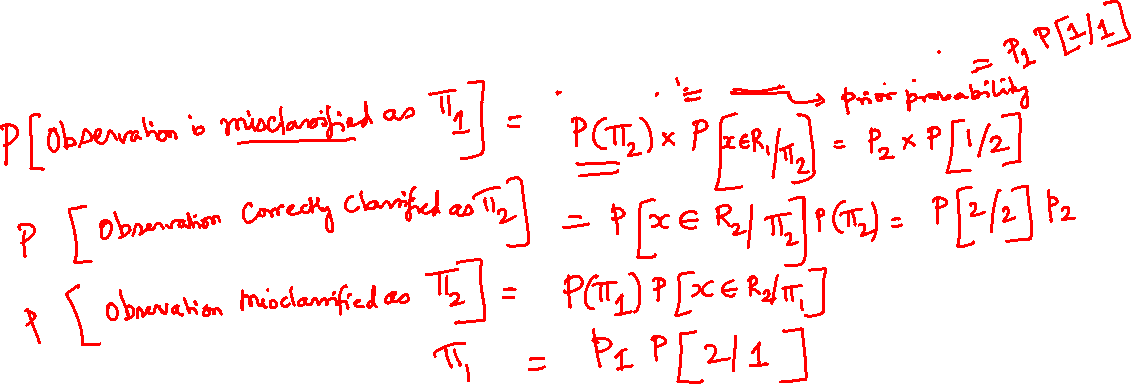 = P₁ P[1/1]
· · '= → prior probability
P[Observation is misclassified as Π₁] = P(Π₂) × P[x∈R₁/Π₂] = P₂ × P[1/2]
P [Observation Correctly Classified as Π₂] = P[x ∈ R₂/Π₂] P(Π₂) = P[2/2] P₂
P [Observation Misclassified as Π₂] = P(Π₁) P[x ∈ R₂/Π₁]
Π₁ = P₁ P[2/1]